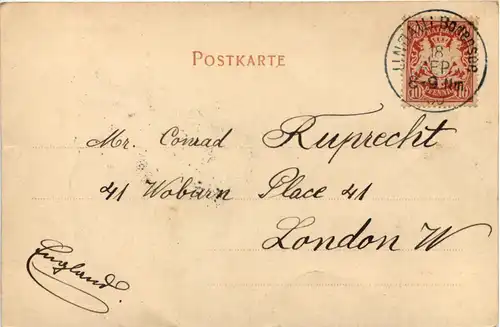 LINDAU i. Bodensee
18
SEP
8-9 Nm.
POSTKARTE
10 PFENNIG 10
Mr. Conrad Ruprecht
41 Woburn Place 41
London W
England.